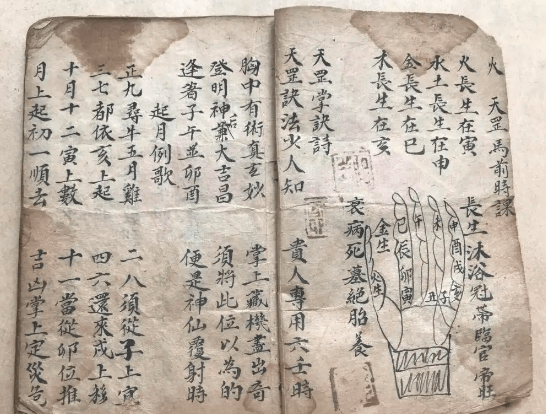 火 天罡馬前時課
火長生在寅 長生沐浴冠帶臨官帝旺
水土長生在申
金長生在巳
木長生在亥
申酉戌亥
未
午
巳辰卯寅
丑子
金生
衰病死墓絕胎養
天罡掌訣詩
天罡訣法少人知 貴人專用六壬時
胸中有術真玄妙 掌上藏機盡出奇
登明神后兼大吉昌 須將此位以為的
逢着子午並卯酉 便是神仙覆射時
起月例歌
正九尋牛五月雞 二八須從子上寅
三七都依亥上起 四六還來戌上移
十月十二寅上數 十一當從卯位推
月上起初一順去 吉凶掌上定災